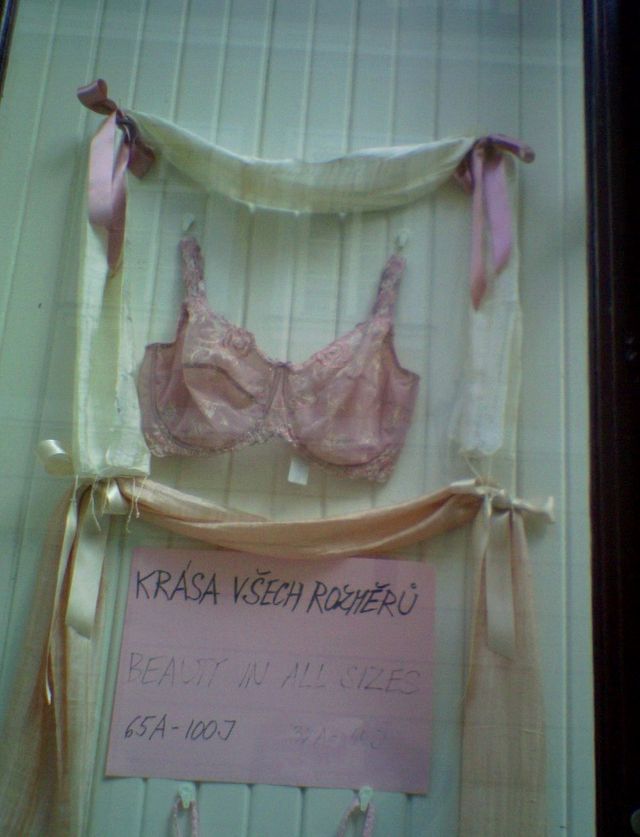 KRÁSA VŠECH ROZMĚRŮ
BEAUTY IN ALL SIZES
65A-100J